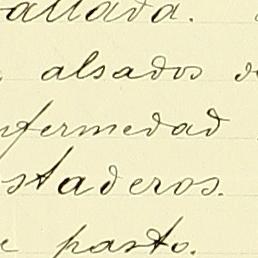 allada.
alsados
nfermedad
staderos.
e pasto.